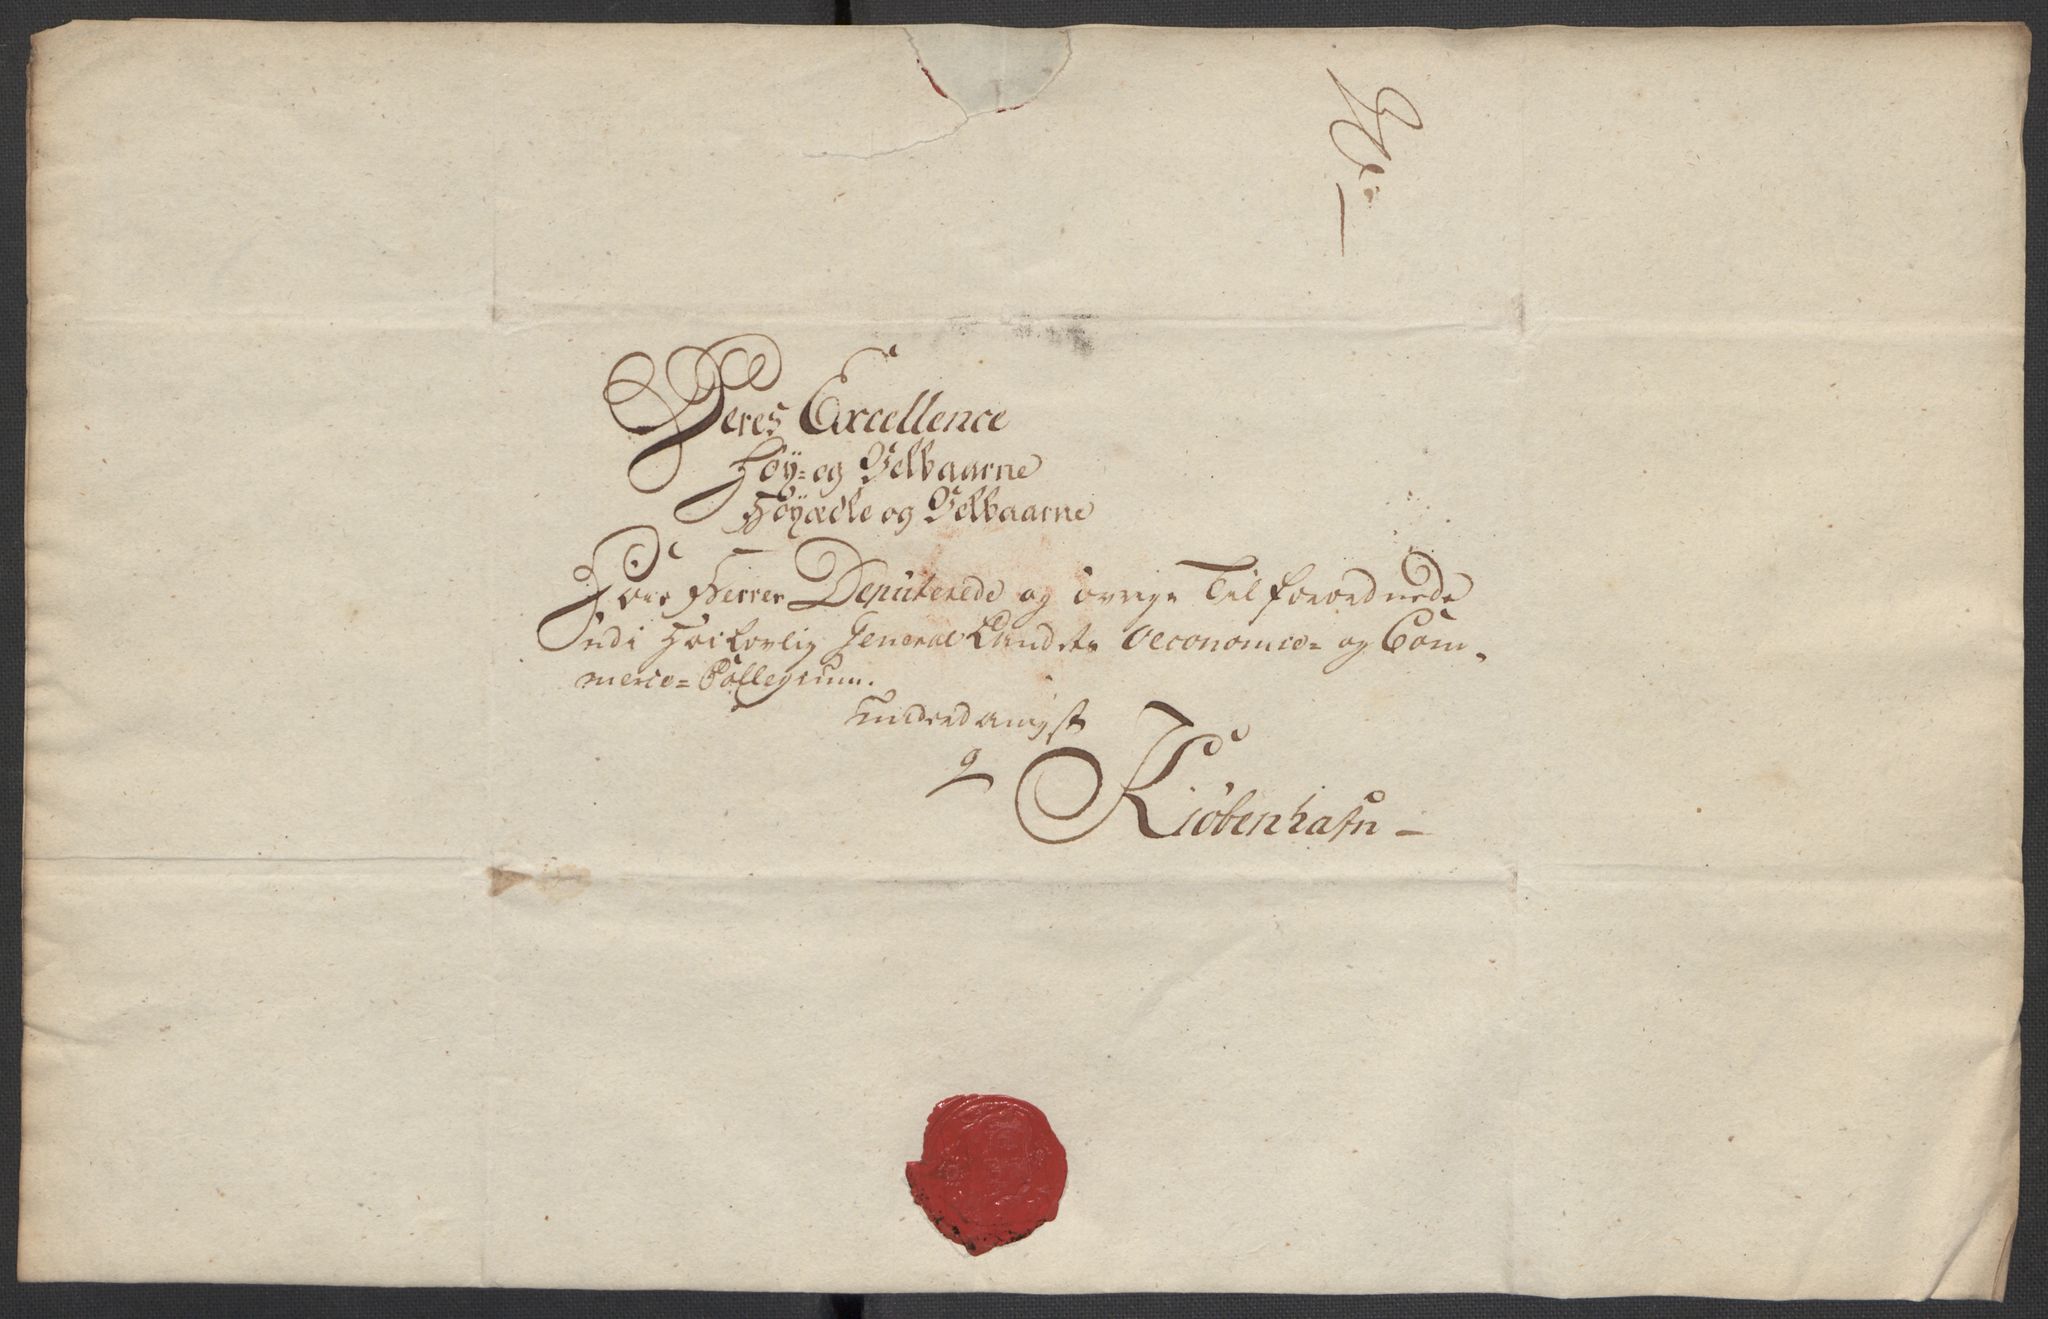 Deres Excellence
Höÿ- og Velbaarne
Höÿædle og Velbaarne
Herrer Deputerede og övrige Tilforordnede
Udi Höilovlig General Landets Oeconomie- og Com-
merce-Collegium.
underdanigst
Kiöbenhafn